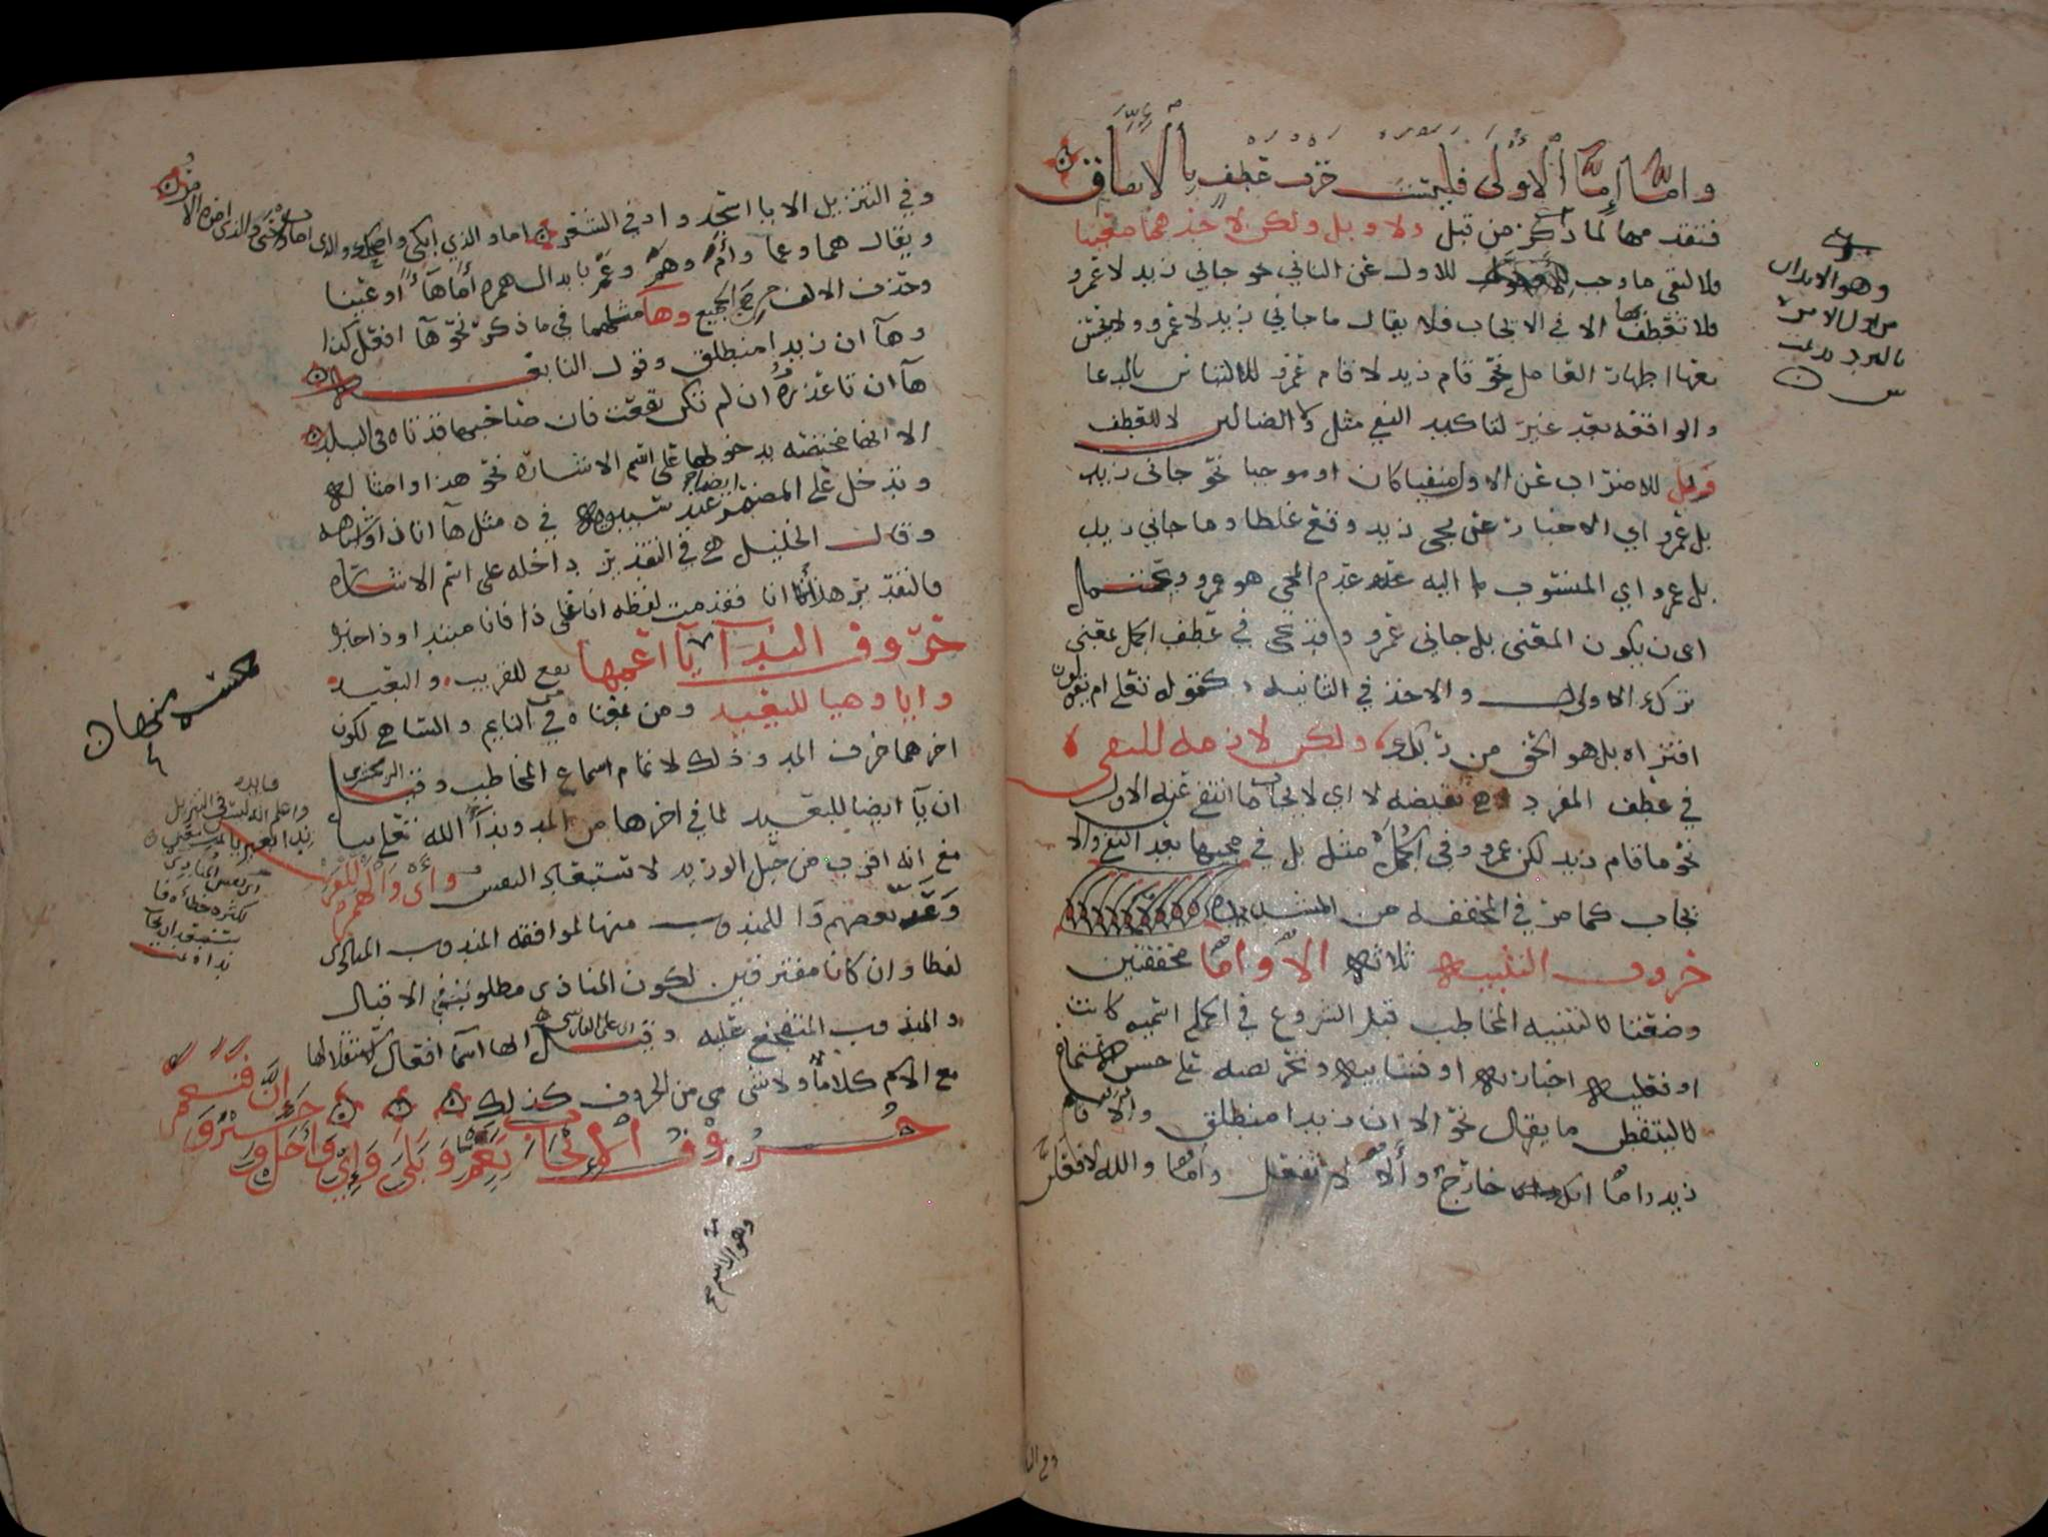 واما إما الأولى فليست حرف عطف بالاتفاق
فتقدمها لما ذكر من قبل ولا وبل ولكن لاحدهما معينا
فلا لنفي ما وجب للاول عن الثاني نحو جاني زيد لا عمرو
فلا تعطف بها الا في الايجاب فلا يقال ما جاني زيد لا عمرو
بعدها اظهار العامل نحو قام زيد لا قام عمرو للالتباس بالدعا
والواقعه بعد غير لتاكيد النفي مثل ولا الضالين لا للعطف
وبل للاضراب عن الاول منفيا كان او موجبا نحو جاني زيد
بل عمرو اي الاخبار عن مجي زيد وقع غلطا وما جاني زيد
بل عمرو اي المنسوب اليه عدم المجي هو عمرو ويحتمل
ان يكون المعنى بل جاني عمرو وقد تجي في عطف الجمل بمعنى
ترك الاولى والاخذ في الثانيه كقوله تعلى ام يقولون
افتراه بل هو الحق من ربك ولكن لازمه للنفي
في عطف المفرد نقيضه لا اي لايجاب ما انتفى عن الاول
نحو ما قام زيد لكن عمرو وفي الجمل مثل بل في مجيها بعد النفي والا
يجاب كما مر في المخففه من المشدده
حروف التنبيه ثلاثه الا واما مخففتين
وضعتا لتنبيه المخاطب قبل الشروع في الجمله اسميه كانت
او فعليه اخباريه او انشائيه وتحريصه على حسن الاستماع
ليتفطن ما يقال نحو الا ان زيدا منطلق والا قام
زيد واما انك خارج وألا لا تفعل واما والله لافعلن
وهو الابدال
وفي التنزيل الا يا اسجدوا وفي الشعر اما والذي ابكى واضحك والذي امات واحيى والذي امره الامر
ويقال هما وعما وأم وهم وعم بابدال همزه أما هآءً أو عينا
وحذف الالف في الجميع وها مثلهما في ما ذكر نحو هآ افعل كذا
وهآ ان زيدا منطلق وقول النابغه
هآ ان تا عذرة ان لم تكن نفعت فان صاحبها قد تاه في البلد
الا انها مختصه بدخولها على اسم الاشاره نحو هذا وامثاله
وتدخل على المضمر ايضا عند سيبويه في مثل هآ انا ذا واشباهه
وقال الخليل هي في التقدير داخله على اسم الاشاره
فالتقدير هذا أنا فقدمت لفظه انا على ذا فانا مبتدا وذا خبره
حروف الندآ يآ اعمها تقع للقريب والبعيد
وايا وهيا للبعيد ومن بمعناه من النايم والساهي لكون
اخرهما حرف المد وذلك لاتمام اسماع المخاطب وقيل الزمخشري
ان يآ ايضا للبعيد لما في اخرها من المد وندآ الله تعلى بيا
مع انه اقرب من حبل الوريد لاستبعاد النفس وأي والهمزه للقريب
وعد بعضهم وا للمندوب منها لموافقه المندوب المنادى
لفظا وان كانا مفترقين لكون المنادى مطلوب الاقبال
والمندوب المتفجع عليه وقيل ابو علي الفارسي انها اسمآ افعال لاستقلالها
مع الاسم كلاما ولا شي من الحروف كذلك
حروف الإيجاب نعم وبلى وإي وأجل وجير وإن فنعم
فايده
واعلم انه ليس في التنزيل
وهو الاسم صح